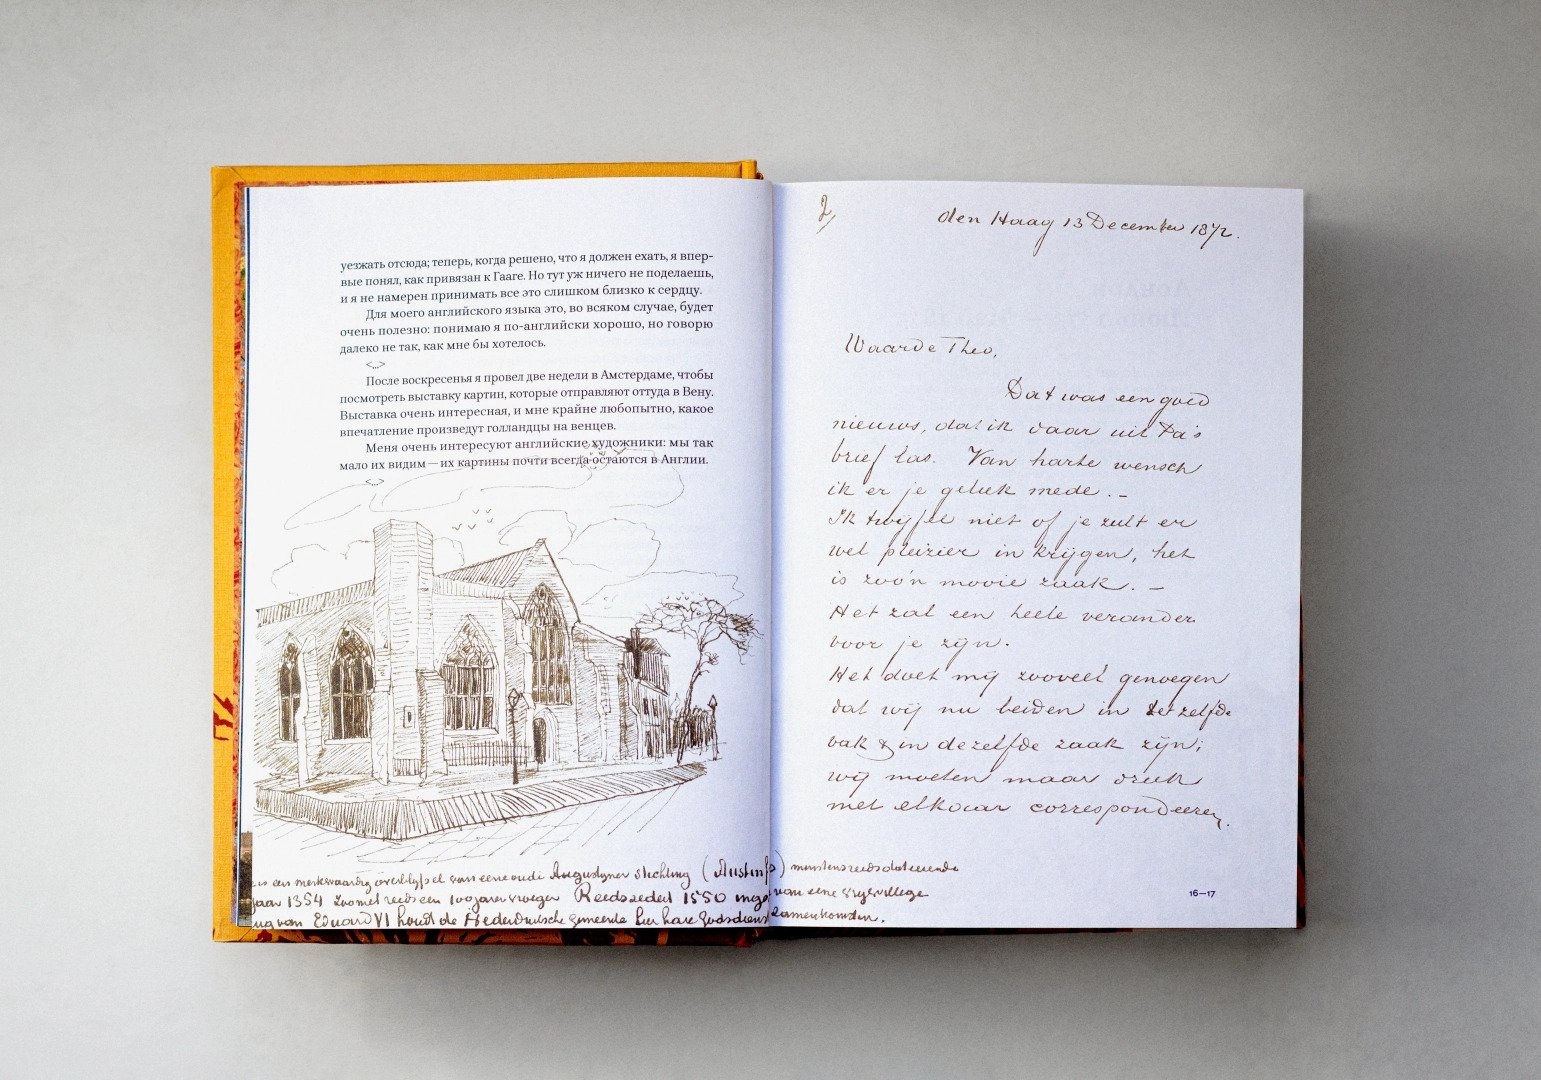 уезжать отсюда; теперь, когда решено, что я должен ехать, я впер-
вые понял, как привязан к Гааге. Но тут уж ничего не поделаешь,
и я не намерен принимать все это слишком близко к сердцу.
Для моего английского языка это, во всяком случае, будет
очень полезно: понимаю я по-английски хорошо, но говорю
далеко не так, как мне бы хотелось.
<...>
После воскресенья я провел две недели в Амстердаме, чтобы
посмотреть выставку картин, которые отправляют оттуда в Вену.
Выставка очень интересная, и мне крайне любопытно, какое
впечатление произведут голландцы на венцев.
Меня очень интересуют английские художники: мы так
мало их видим — их картины почти всегда остаются в Англии.
<...>
is een merkwaardig overblijfsel van eene oude Augustyner stichting (Austin) minstens reeds dateerende
jaar 1354 zoo niet reeds een 100 jaren vroeger Reeds sedert 1550 van eene
van Eduard VI houdt de Nederduitsche gemeente hier hare Godsdienst zamenkomsten.
2,
den Haag 13 December 1872.
Waarde Theo,
Dat was een goed
nieuws, dat ik daar uit Pa's
brief las. Van harte wensch
ik er je geluk mede. –
Ik twijfel niet of je zult er
wel pleizier in krijgen, het
is zoo'n mooie zaak. –
Het zal een heele verander
voor je zijn.
Het doet mij zooveel genoegen
dat wij nu beiden in het zelfde
vak & in dezelfde zaak zijn;
wij moeten maar druk
met elkaar correspondeeren.
16—17